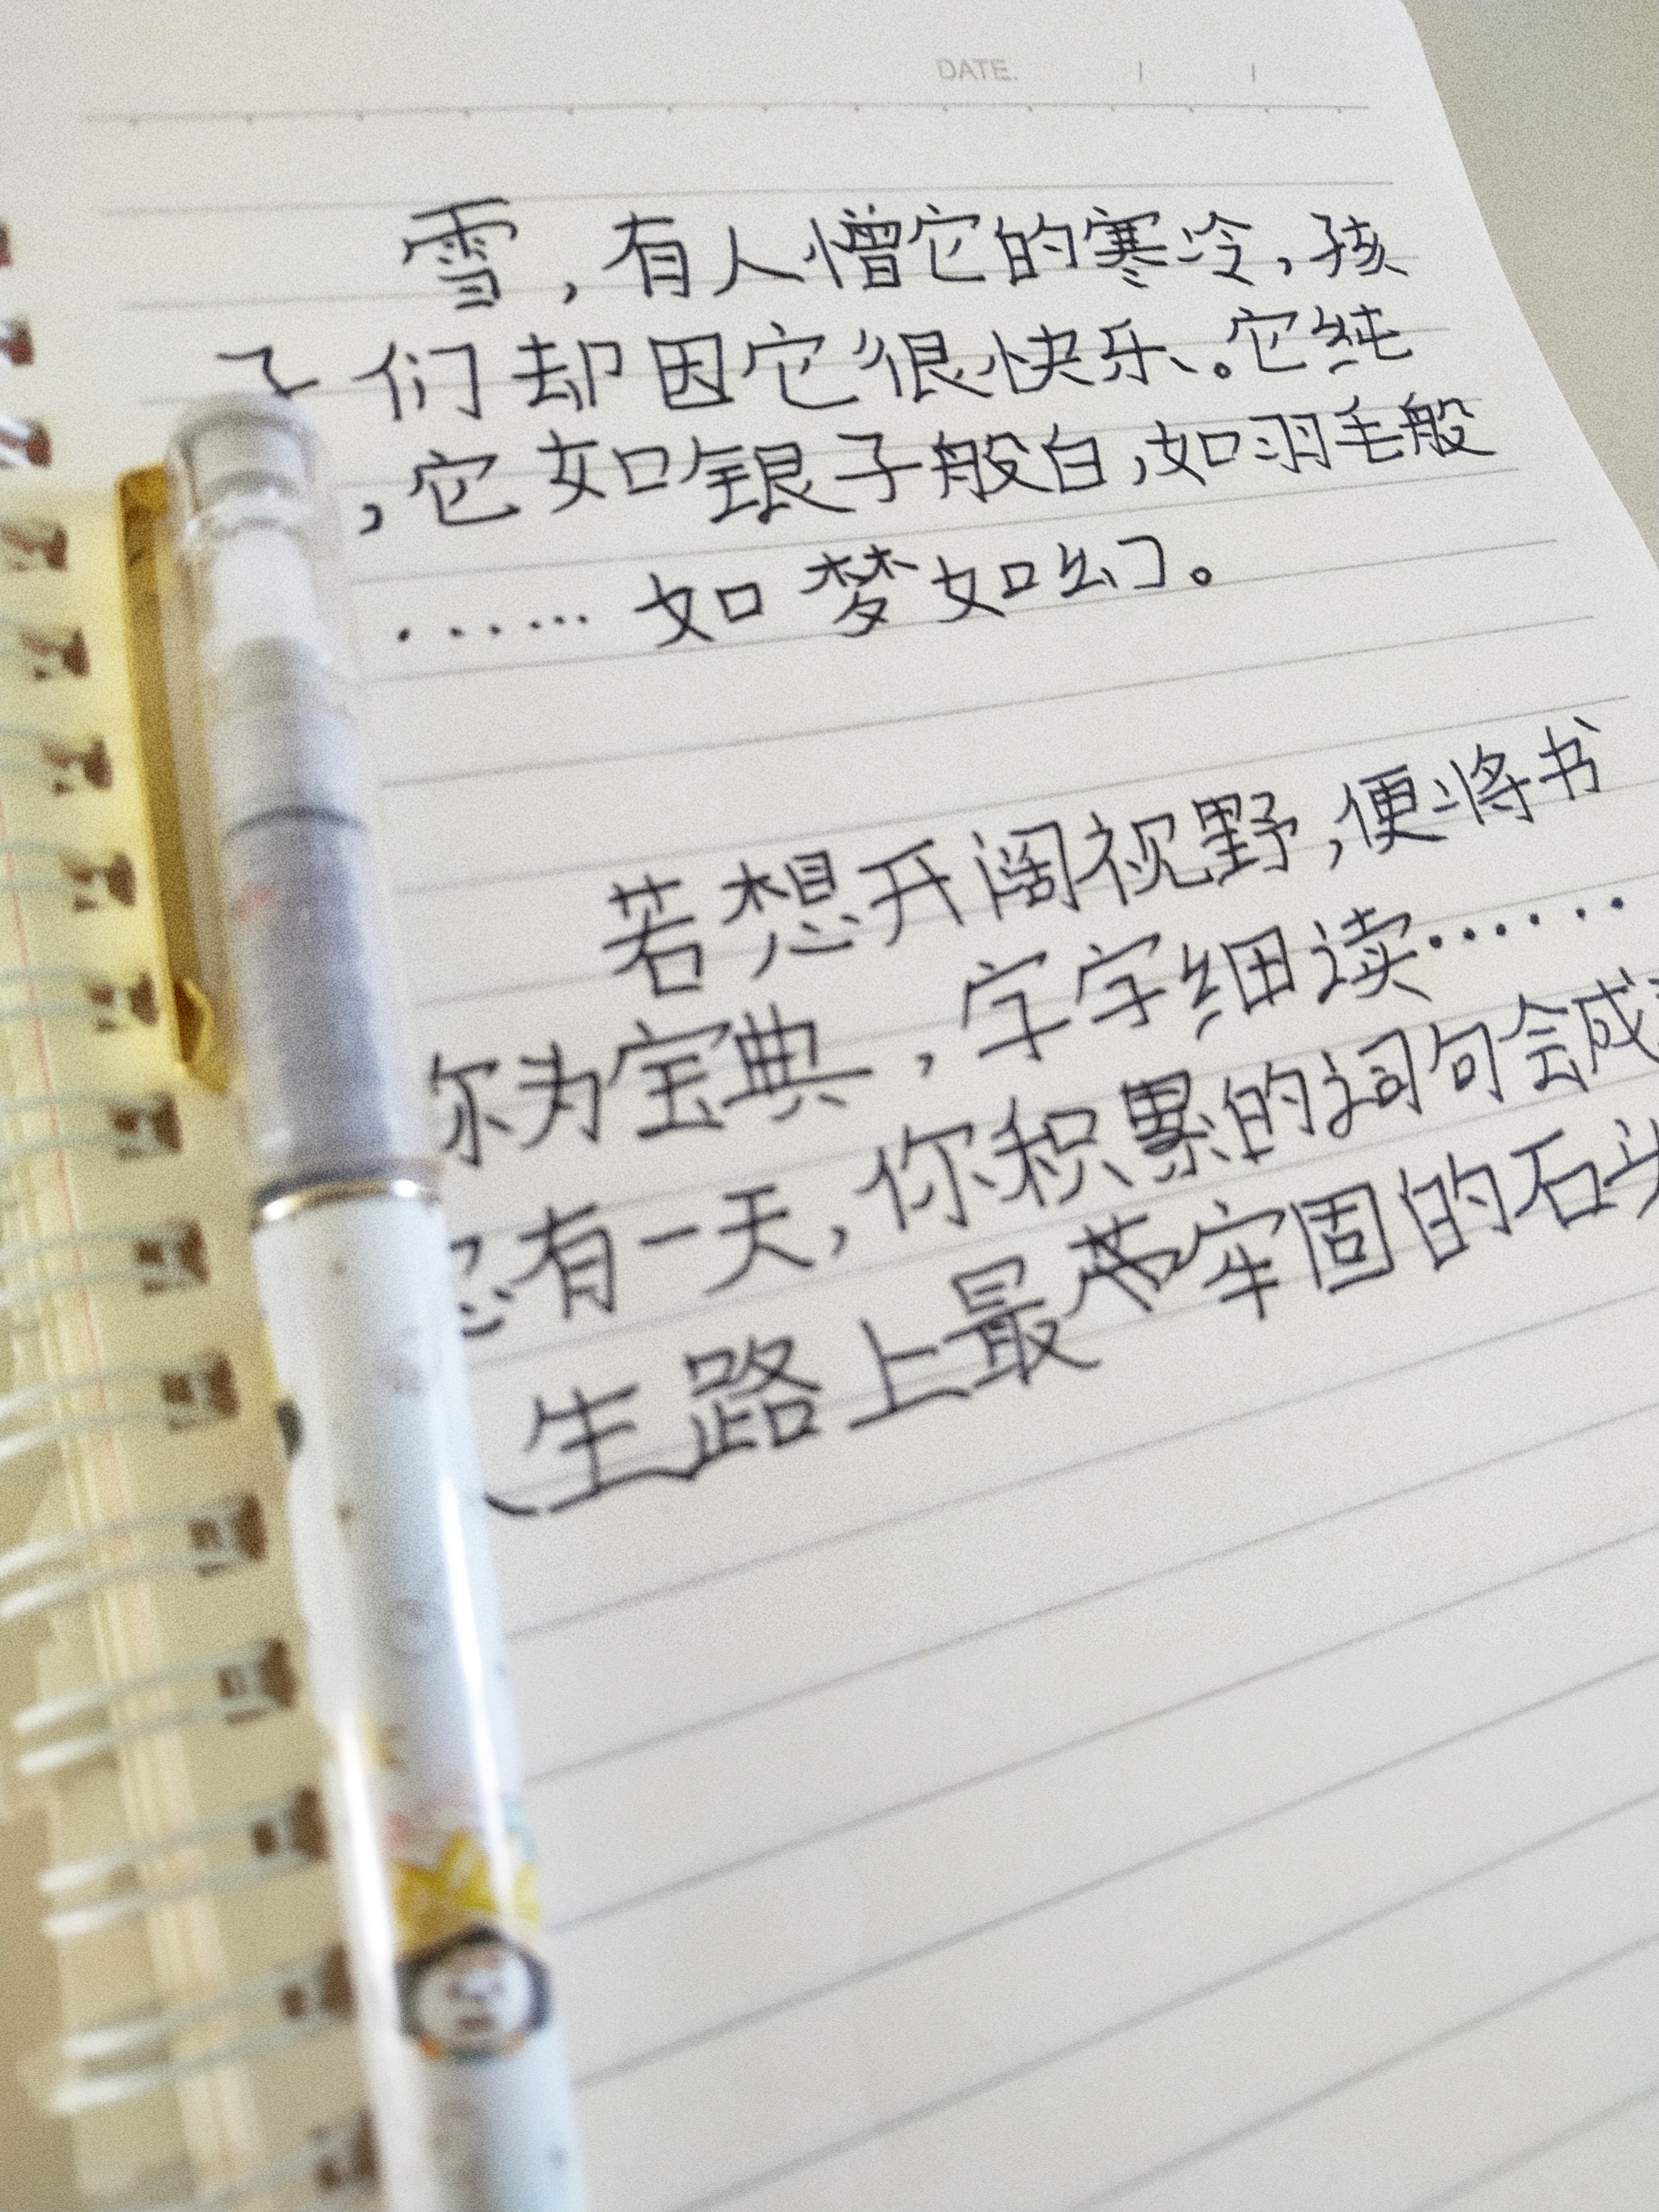 DATE. / /
雪，有人憎它的寒冷，孩
子们却因它很快乐。它纯
，它如银子般白，如羽毛般
……如梦如幻。
若想开阔视野，便将书
你为宝典，字字细读……
有一天，你积累的词句会成
生路上最牢固的石头